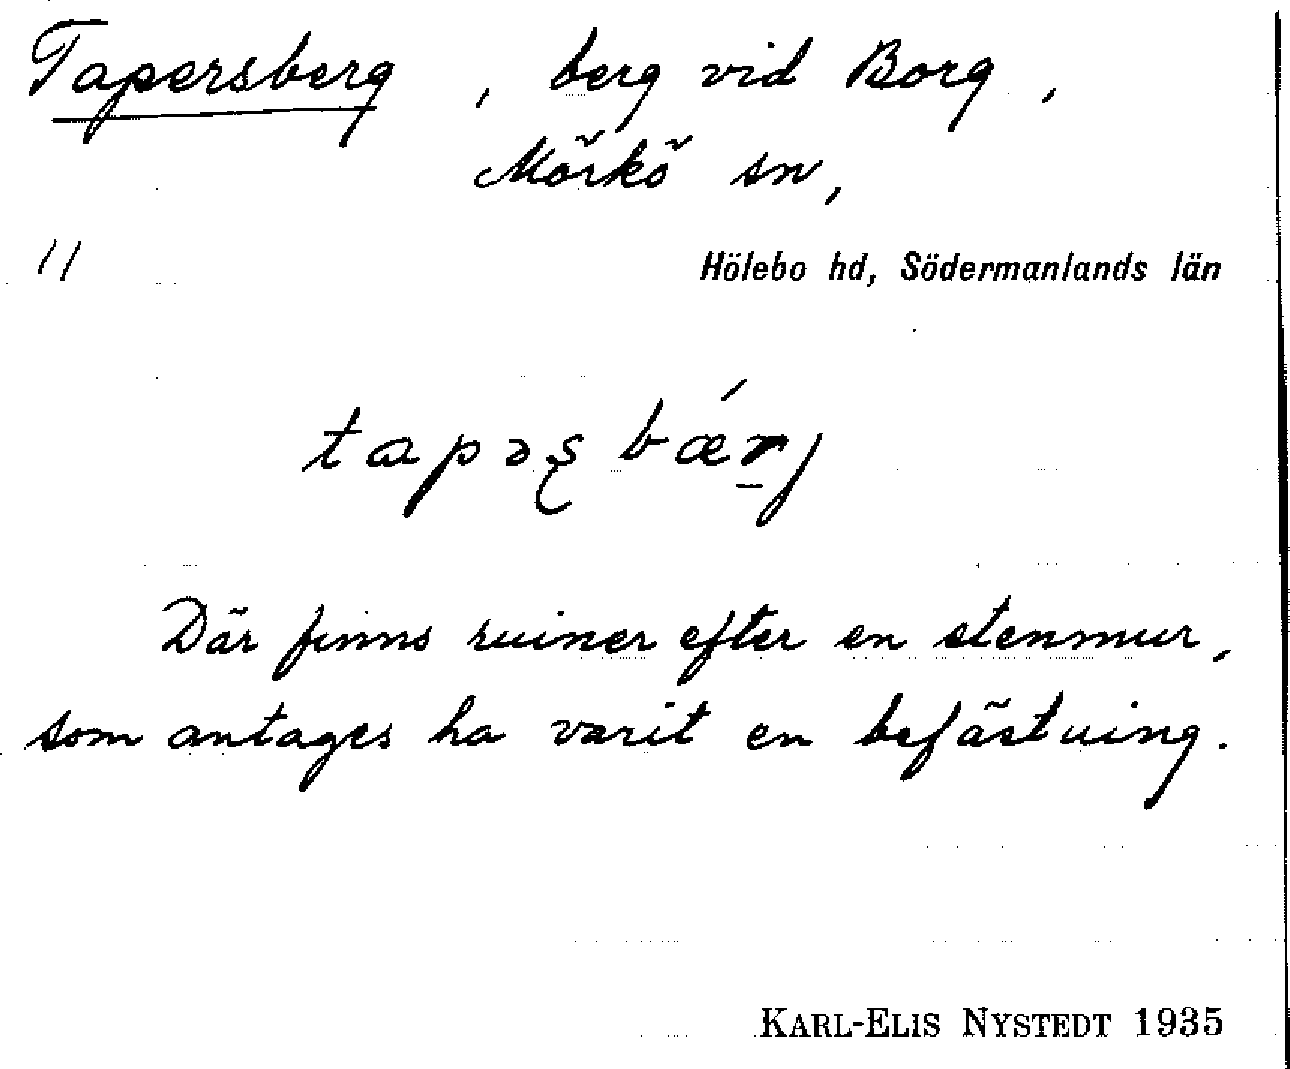 Tapersberg, berg vid Borg,
Mörkö sn,
11
Hölebo hd, Södermanlands län
tapəʂ bǽr̠j
Där finns ruiner efter en stenmur,
som antages ha varit en befästning.
KARL-ELIS NYSTEDT 1935